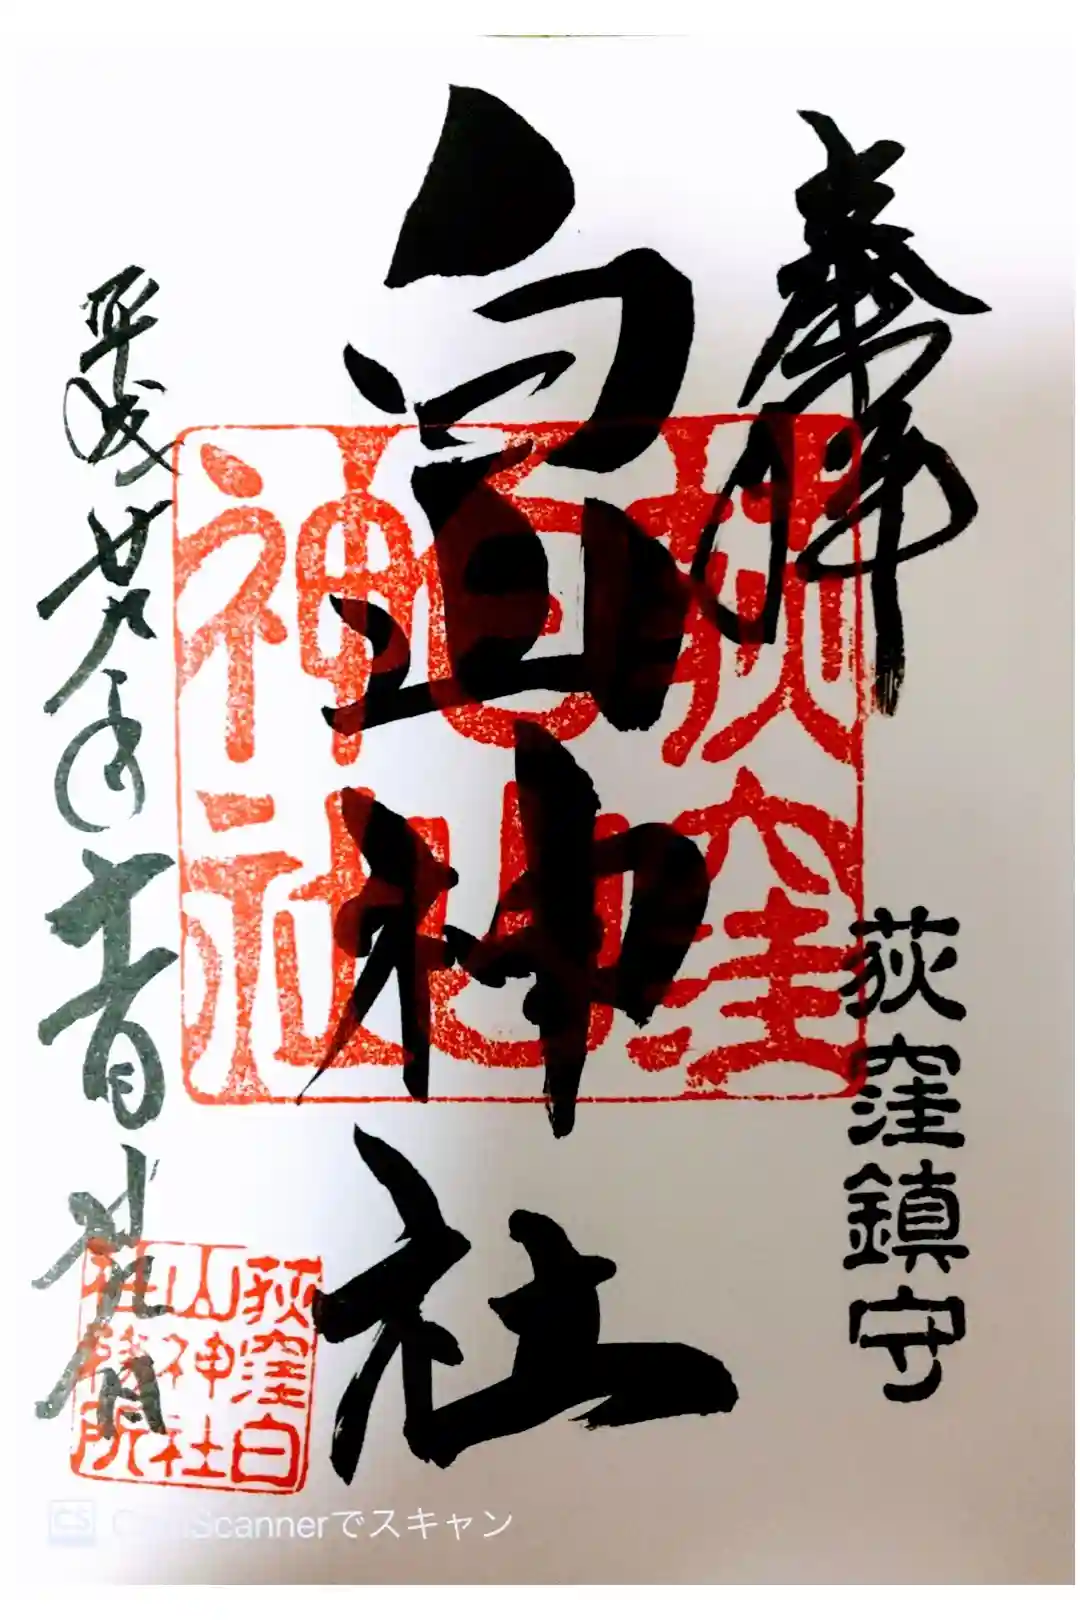 奉拝
荻窪鎮守
白山神社
荻窪
白山
神社
平成廿八年
荻窪白
山神社
社務所
CamScannerでスキャン